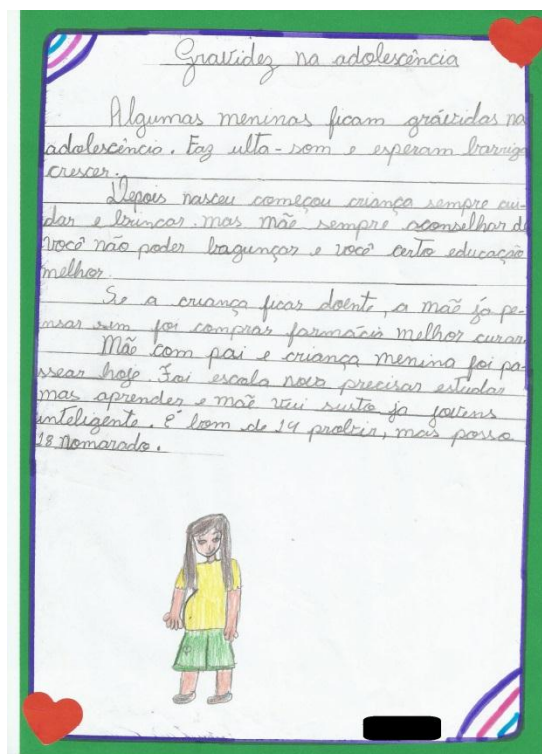 Gravidez na adolescência
Algumas meninas ficam gráuidas na
adolescência. Faz ulta-som e esperam barriga
crescer.
Depois nasceu começou criança sempre cui-
dar e brincar. mas mãe sempre aconselhar de
você não poder bagunçar e você certo educação
melhor.
Se a criança ficar doente, a mãe ja pe-
nsar sim foi comprar farmácia melhor curar.
Mãe com pai e criança menina foi pa-
ssear hoje. Foi escola novo precisar estudar
mas aprender e mãe viu susto ja jovens
inteligente. É bom de 19 probir, mas posso
18 nomarado.